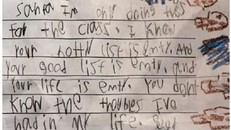 Santa Im only doing this
for the class. I know
your notty list is emty. And
your good list is emty. And
your life is emty. You dont
know the troubles Ive
had in my life. Good